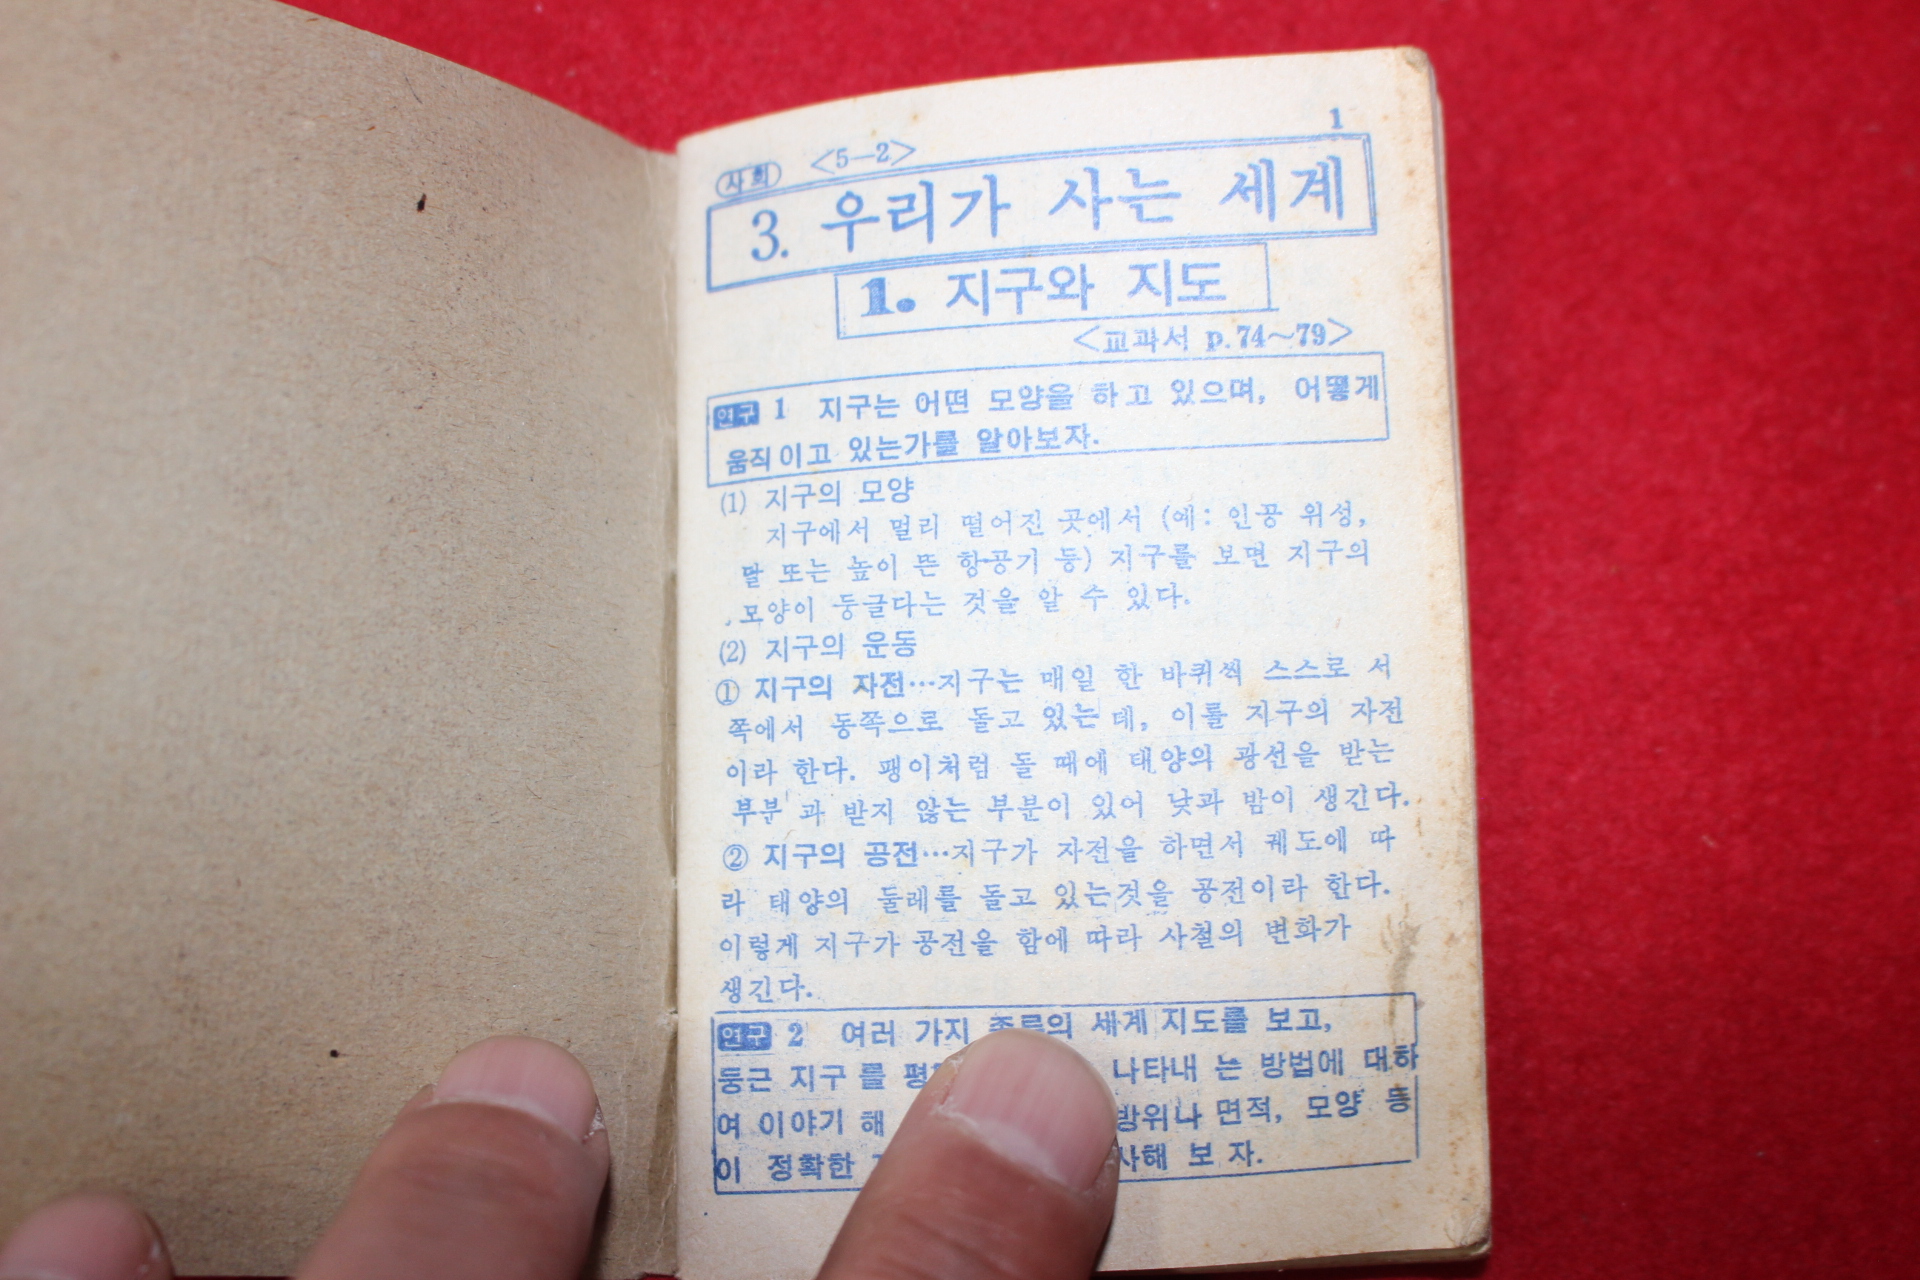 1
사회 <5-2>
3. 우리가 사는 세계
1. 지구와 지도
<교과서 p.74~79>
연구 1 지구는 어떤 모양을 하고 있으며, 어떻게
움직이고 있는가를 알아보자.
(1) 지구의 모양
지구에서 멀리 떨어진 곳에서 (예: 인공 위성,
달 또는 높이 뜬 항공기 등) 지구를 보면 지구의
모양이 둥글다는 것을 알 수 있다.
(2) 지구의 운동
① 지구의 자전…지구는 매일 한 바퀴씩 스스로 서
쪽에서 동쪽으로 돌고 있는데, 이를 지구의 자전
이라 한다. 팽이처럼 돌 때에 태양의 광선을 받는
부분과 받지 않는 부분이 있어 낮과 밤이 생긴다.
② 지구의 공전…지구가 자전을 하면서 궤도에 따
라 태양의 둘레를 돌고 있는것을 공전이라 한다.
이렇게 지구가 공전을 함에 따라 사철의 변화가
생긴다.
연구 2 여러 가지 종류의 세계 지도를 보고,
둥근 지구를 나타내는 방법에 대하
여 이야기 해 방위나 면적, 모양 등
이 정확한 보자.